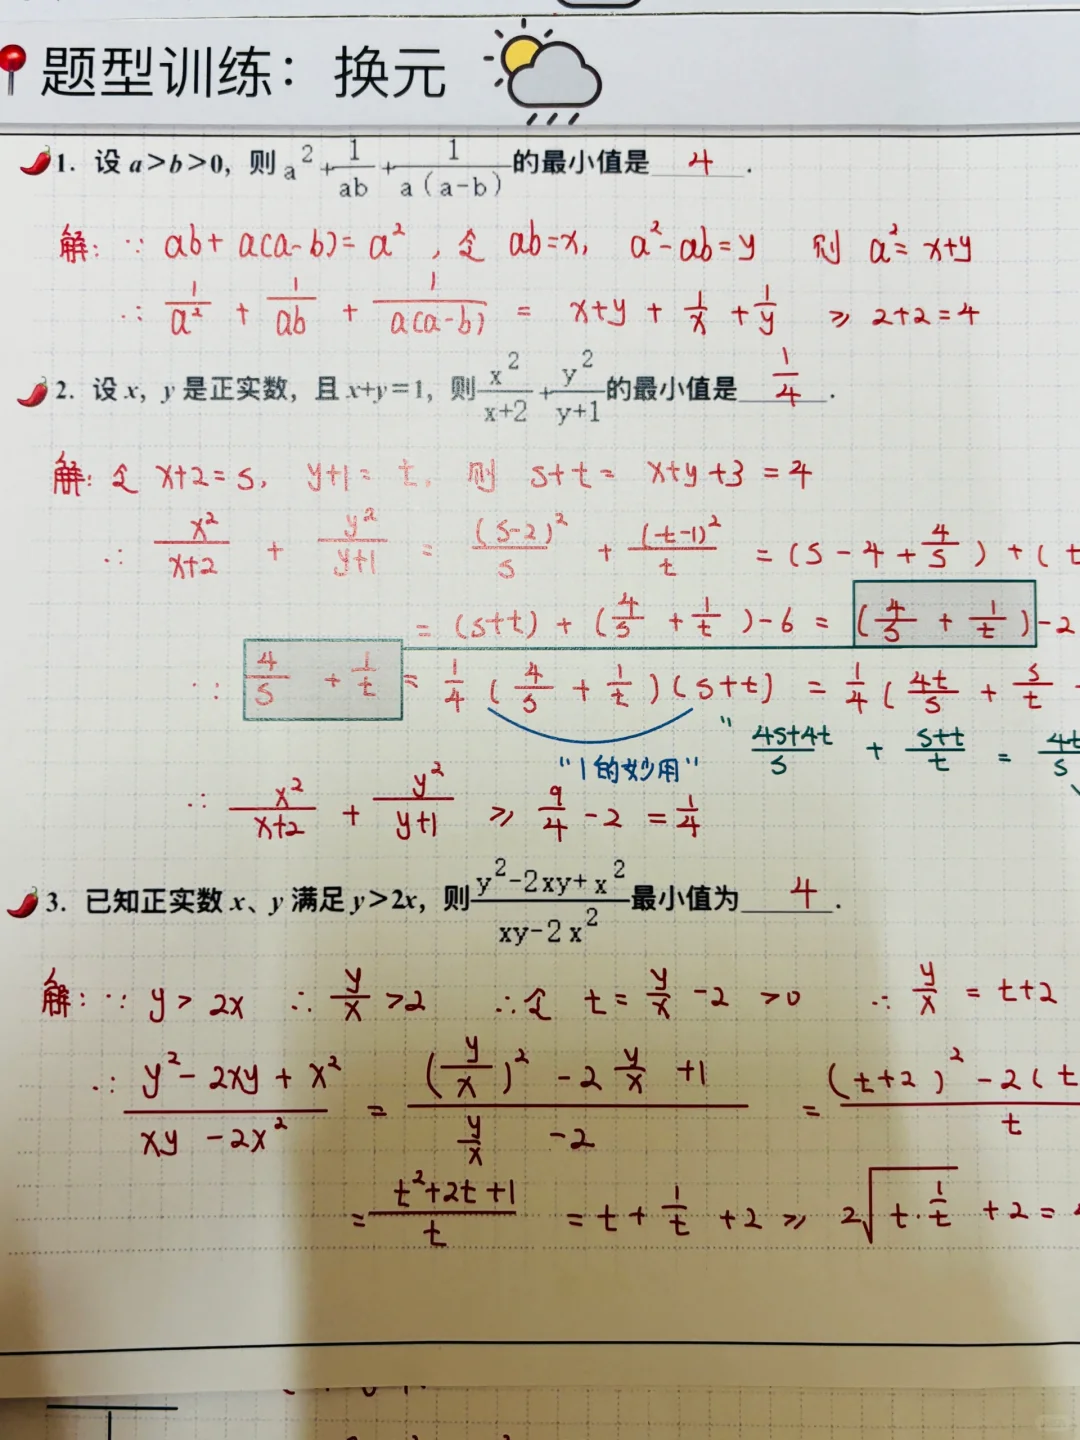 题型训练：换元
1. 设 a>b>0，则 a²+1/ab+1/a(a-b) 的最小值是 4 .
解：∵ ab+a(a-b)=a²，令 ab=x，a²-ab=y 则 a²=x+y
∴ 1/a² + 1/ab + 1/a(a-b) = x+y + 1/x + 1/y ≥ 2+2=4
2. 设 x，y 是正实数，且 x+y=1，则 x²/x+2 + y²/y+1 的最小值是 1/4 .
解：令 x+2=s，y+1=t，则 s+t = x+y+3 = 4
∴ x²/x+2 + y²/y+1 = (s-2)²/s + (t-1)²/t = (s-4+4/s)+(t
= (s+t)+(4/s+1/t)-6 = (4/s+1/t)-2
∵ 4/s+1/t = 1/4(4/s+1/t)(s+t) = 1/4(4t/s + s/t
"1的妙用" " 4s+4t/s + s+t/t = 4t/s
∴ x²/x+2 + y²/y+1 ≥ 9/4-2 = 1/4
3. 已知正实数 x、y 满足 y>2x，则 y²-2xy+x²/xy-2x² 最小值为 4 .
解：∵ y>2x ∴ y/x>2 ∴令 t=y/x-2 >0 ∴ y/x = t+2
∴ y²-2xy+x²/xy-2x² = (y/x)²-2y/x+1/y/x-2 = (t+2)²-2(t/t
= t²+2t+1/t = t+1/t+2 ≥ 2√t·1/t +2=